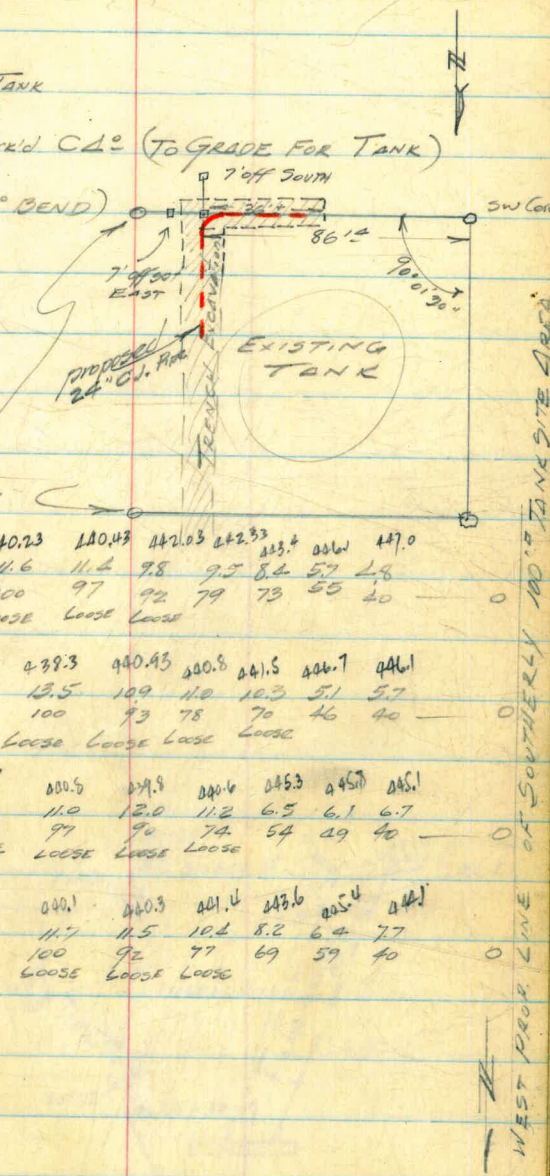 TANK
ck'd C4º (TO GRADE FOR TANK)
7' off SOUTH
BEND)
SW Cor
86
7' off
EAST
90° 01' 30"
proposed
24" C.I. Pipe
TRENCH EXCAVATION
EXISTING
TANK
N
40.23 440.43 442.03 442.33 443.4 446.1 447.0
11.6 11.4 9.8 9.5 8.4 5.7 4.8
100 97 92 79 73 55 40 — 0
OSE LOOSE LOOSE
438.3 440.93 440.8 441.5 446.7 446.1
13.5 10.9 11.0 10.3 5.1 5.7
100 93 78 70 46 40 — 0
LOOSE LOOSE LOOSE LOOSE
440.8 439.8 440.6 445.3 445.7 445.1
11.0 12.0 11.2 6.5 6.1 6.7
97 90 74 54 49 40 — 0
LOOSE LOOSE LOOSE
440.1 440.3 441.4 443.6 445.4 444.1
11.7 11.5 10.4 8.2 6.4 7.7
100 92 77 69 59 40 0
LOOSE LOOSE LOOSE
WEST PROP. LINE OF SOUTHERLY 100' TANK SITE AREA